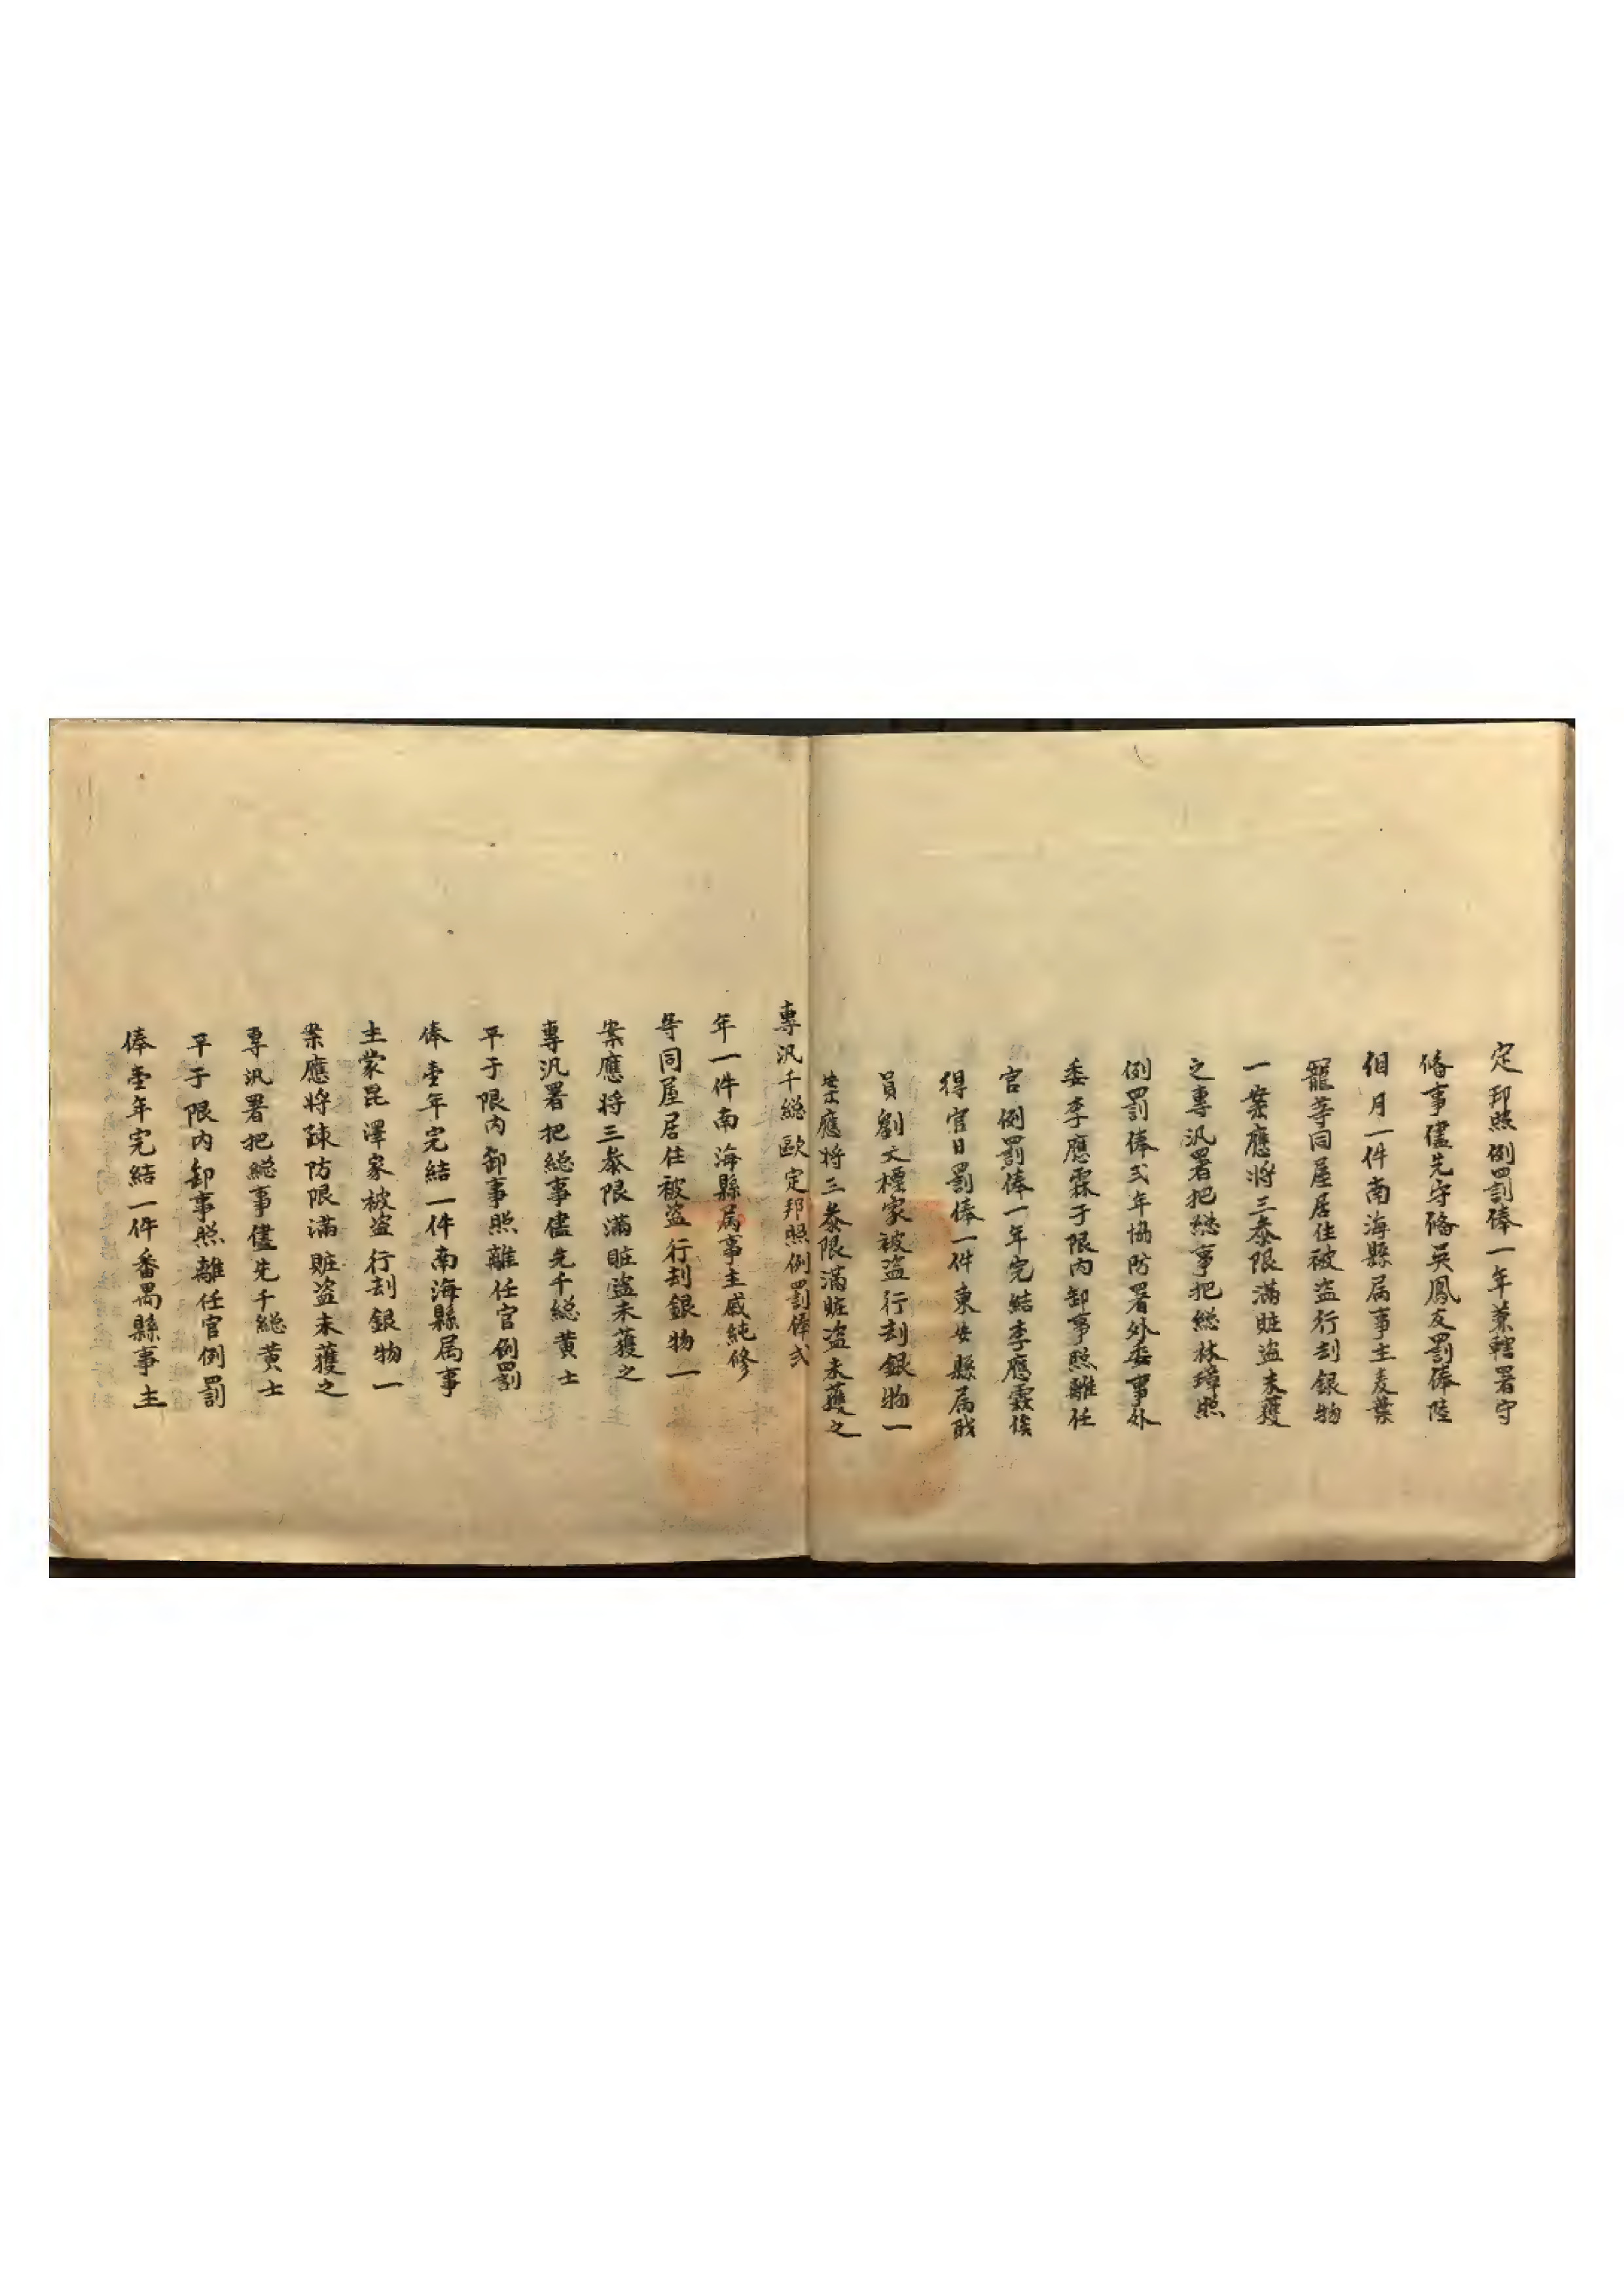 定邦照例罰俸一年兼轄署守
俻事儘先守俻吳鳳友罰俸陸
個月一件南海縣属事主麦葉
寵等同屋居住被盗行刦銀物
一案應將三叅限滿賍盗未獲
之專汛署把總事把總林璋照
例罰俸弍年協防署外委事外
委李應霖于限内卸事照離任
官例罰俸一年完結李應霖俟
得官日罰俸一件東安縣属戢
員劉文標家被盗行刦銀物一
案應將三叅限滿賍盗未獲之
專汛千総歐定邦照例罰俸弍
年一件南海縣属事主戚純修
等同屋居住被盗行刦銀物一
案應將三叅限滿賍盗未獲之
專汛署把総事儘先千総黄士
平于限内卸事照離任官例罰
俸壹年完結一件南海縣属事
主蒙昆澤家被盗行刦銀物一
案應將踈防限滿賍盗未獲之
專汛署把総事儘先千総黄士
平于限内卸事照離任官例罰
俸壹年完結一件番禺縣事主